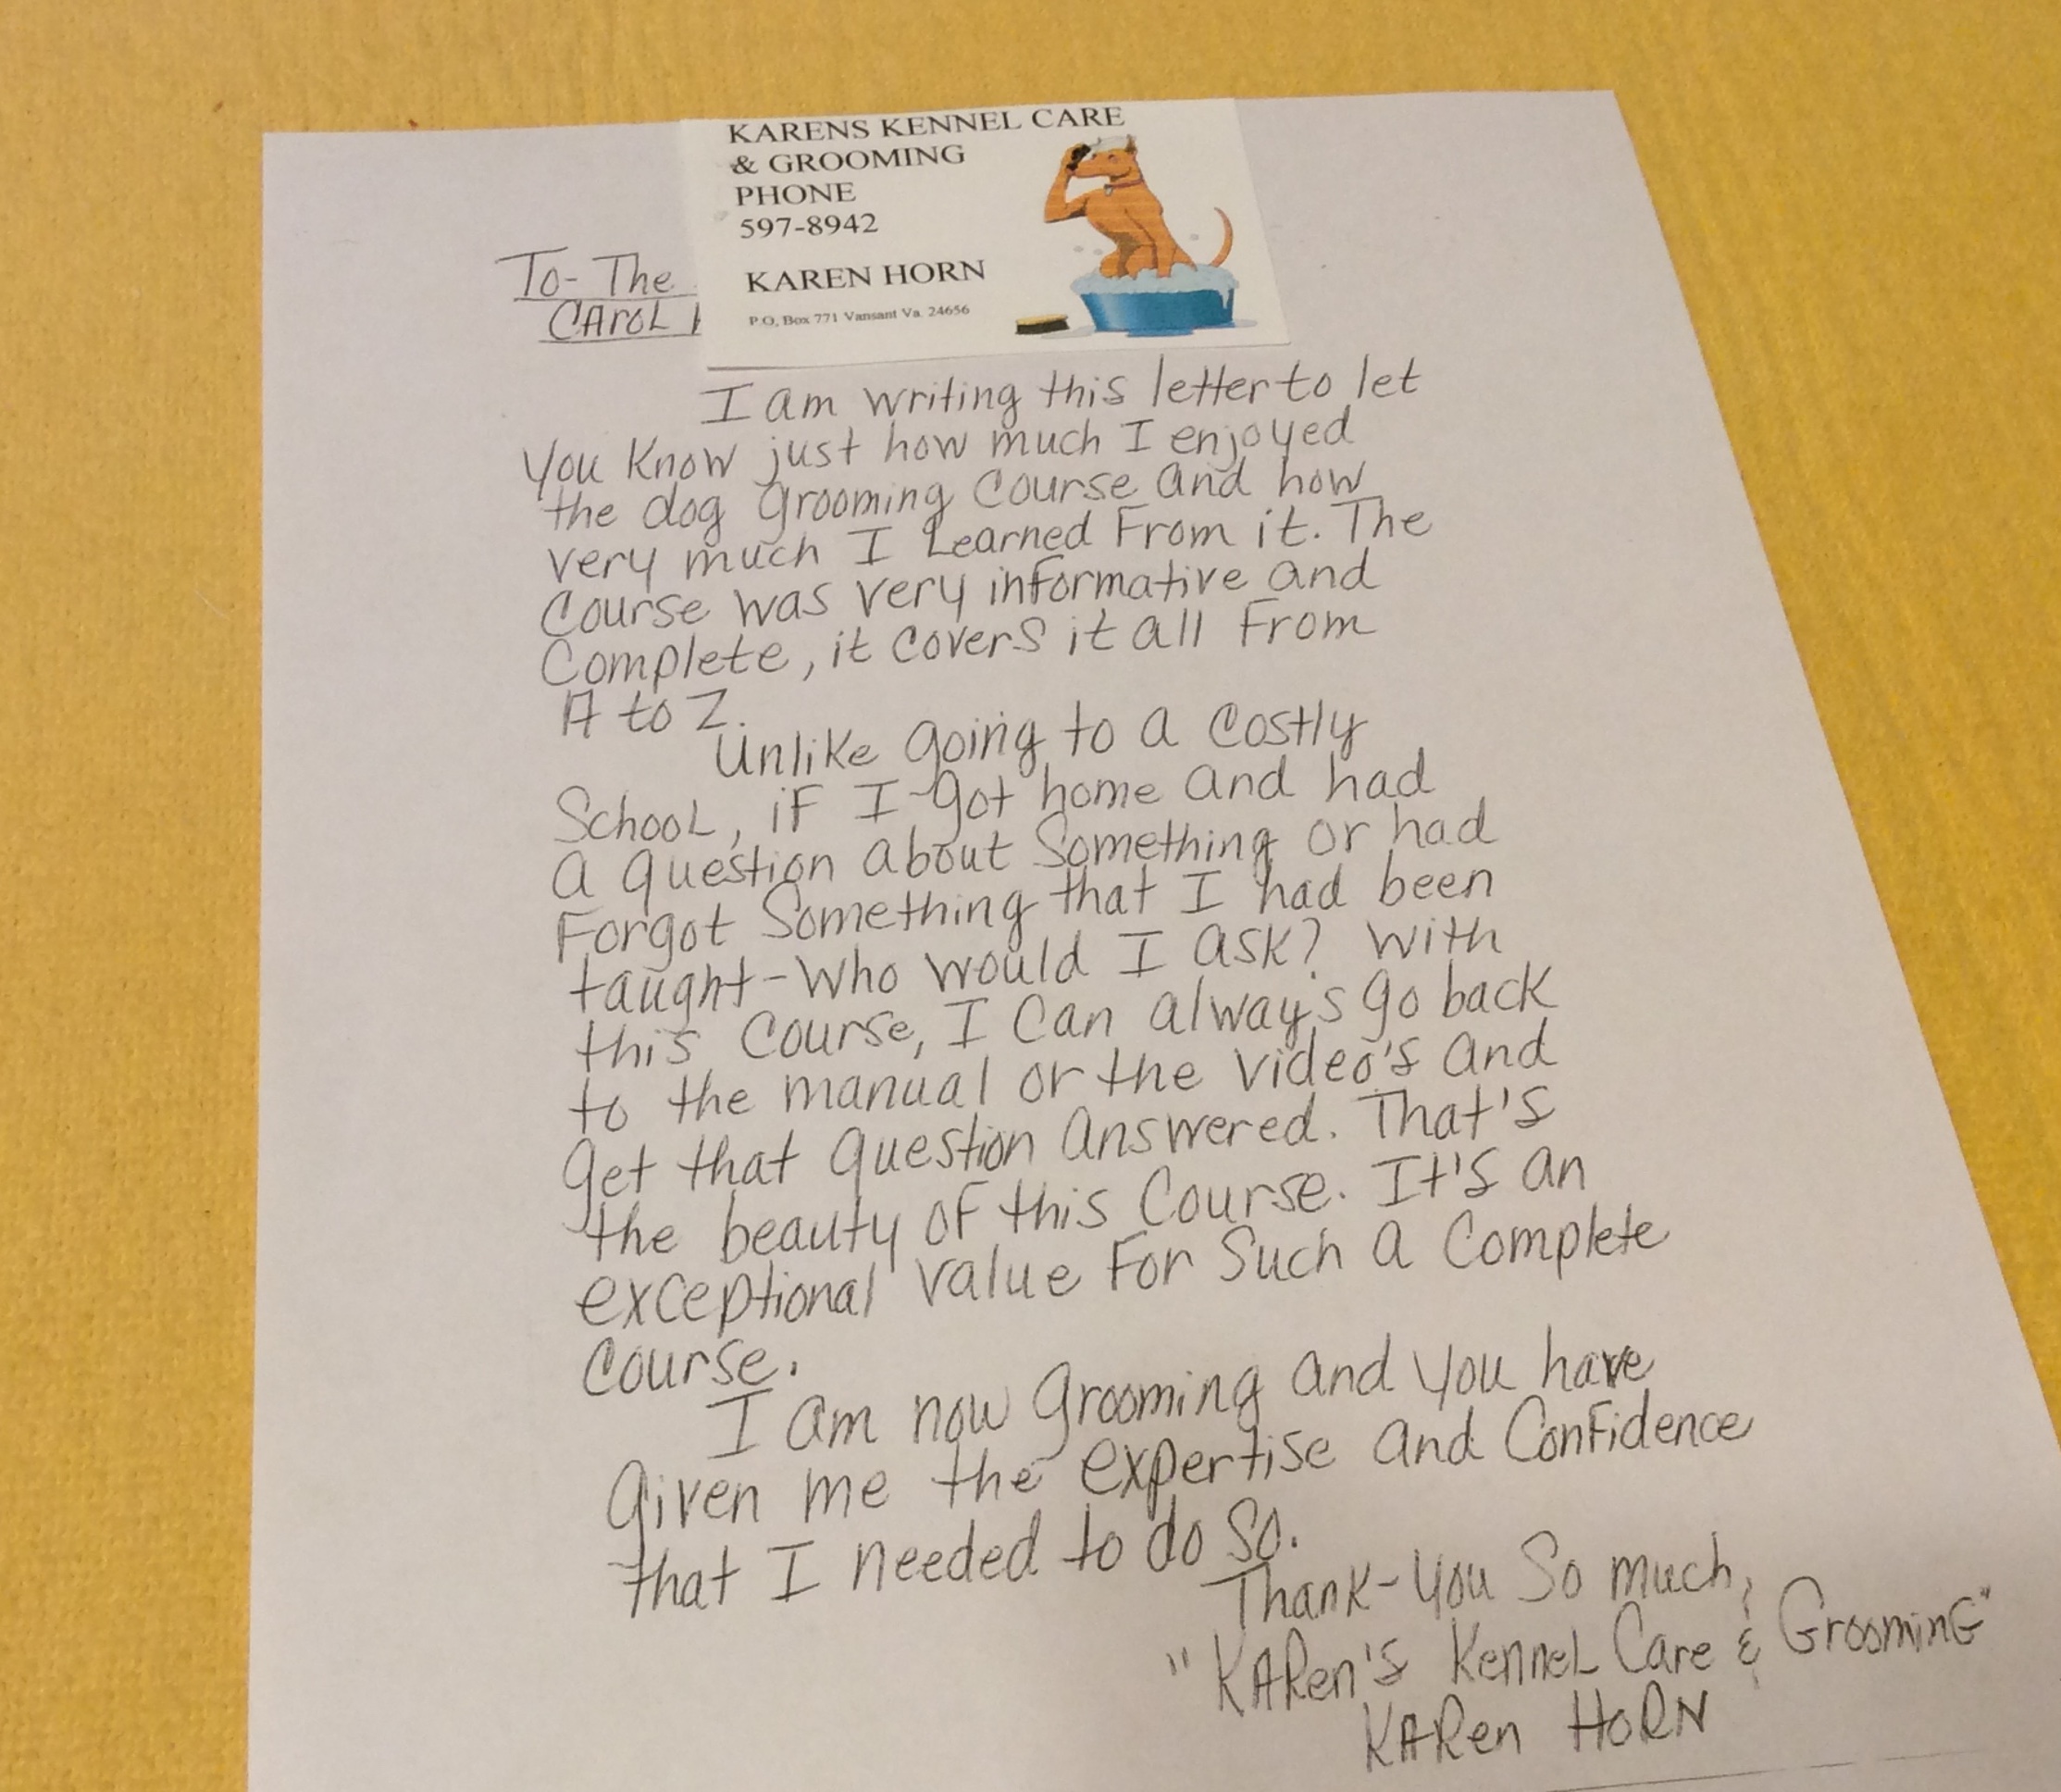 KARENS KENNEL CARE
& GROOMING
PHONE
597-8942
KAREN HORN
P.O. Box 771 Vansant Va. 24656
To- The
CAROL
I am writing this letter to let
you know just how much I enjoyed
the dog grooming course and how
very much I Learned From it. The
Course was very informative and
Complete, it covers it all From
A to Z.
Unlike going to a costly
School, if I got home and had
a question about something or had
Forgot Something that I had been
taught-Who would I ask? With
this Course, I can always go back
to the manual or the video's and
get that question answered. That's
the beauty of this Course. It's an
exceptional value For Such a Complete
Course.
I am now grooming and you have
given me the expertise and Confidence
that I needed to do so.
Thank-you So much,
"KARen's Kennel Care & GroominG"
KARen HORN